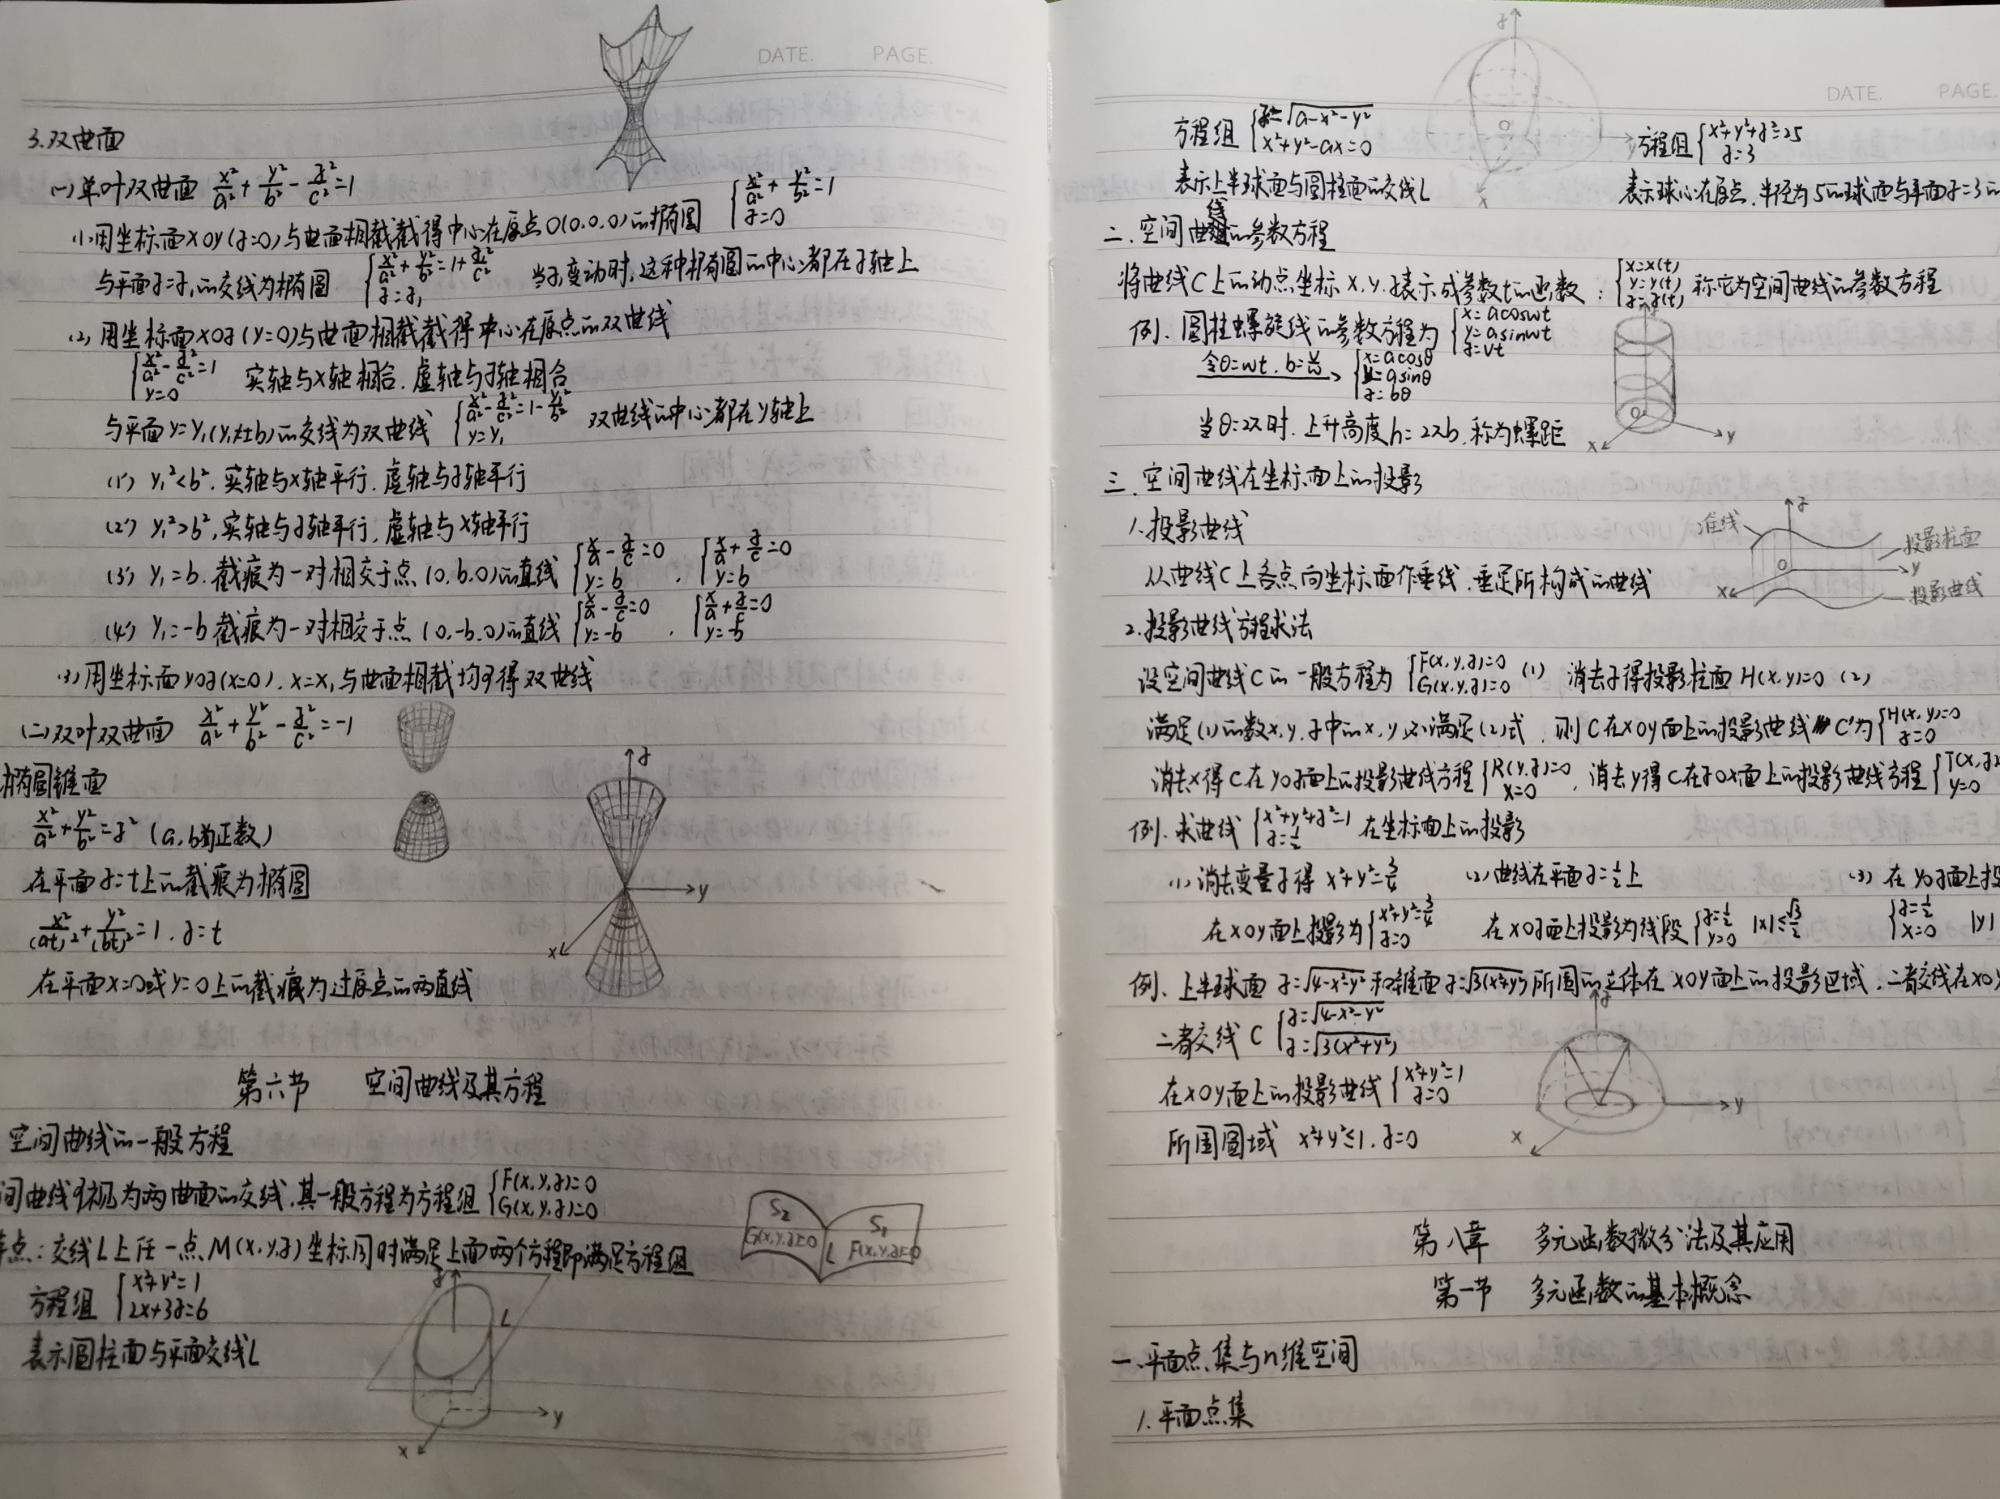 DATE. PAGE.
3.双曲面
(一)单叶双曲面 x²/a²+y²/b²-z²/c²=1
(1)用坐标面xoy(z=0)与曲面相截截得中心在原点O(0,0,0)的椭圆 {x²/a²+y²/b²=1 z=0
与平面z=z₁的交线为椭圆 {x²/a²+y²/b²=1+z₁²/c² z=z₁ 当z₁变动时,这种椭圆的中心都在z轴上
(2)用坐标面xoz(y=0)与曲面相截截得中心在原点的双曲线
{x²/a²-z²/c²=1 y=0 实轴与x轴相合.虚轴与z轴相合
与平面y=y₁(y₁≠±b)的交线为双曲线 {x²/a²-z²/c²=1-y₁²/b² y=y₁ 双曲线的中心都在y轴上
(1') y₁²<b².实轴与x轴平行.虚轴与z轴平行
(2') y₁²>b²,实轴与z轴平行,虚轴与x轴平行
(3') y₁=b.截痕为一对相交于点(0,b,0)的直线 {x/a-z/c=0 y=b , {x/a+z/c=0 y=b
(4') y₁=-b.截痕为一对相交于点(0,-b,0)的直线 {x/a-z/c=0 y=-b , {x/a+z/c=0 y=-b
(3)用坐标面yoz(x=0).x=x₁与曲面相截均可得双曲线
(二)双叶双曲面 x²/a²+y²/b²-z²/c²=-1
椭圆锥面
x²/a²+y²/b²=z² (a,b为正数)
在平面z=t上的截痕为椭圆
x²/(at)²+y²/(bt)²=1.z=t
在平面x=0或y=0上的截痕为过原点的两直线
z
y
x
第六节 空间曲线及其方程
空间曲线的一般方程
间曲线可视为两曲面的交线.其一般方程为方程组 {F(x,y,z)=0 G(x,y,z)=0
点:交线L上任一点M(x,y,z)坐标同时满足上面两个方程即满足方程组
S₂ G(x,y,z)=0 L S₁ F(x,y,z)=0
方程组 {x²+y²=1 2x+3z=6
表示圆柱面与平面交线L
z
L
y
x
DATE. PAGE.
z
O
x
方程组 {z=√(a-x²-y²) x²+y²-ax=0
表示上半球面与圆柱面的交线L
方程组 {x²+y²+z²=25 z=3
表示球心在原点.半径为5的球面与平面z=3的
二.空间曲线的参数方程
将曲线C上的动点坐标x,y,z表示成参数t的函数: {x=x(t) y=y(t) z=z(t) 称它为空间曲线的参数方程
例.圆柱螺旋线的参数方程为 {x=acoswt y=asinwt z=vt
令θ=wt.b=v/w → {x=acosθ y=asinθ z=bθ
当θ=2π时.上升高度h=2πb.称为螺距
z
O
x
y
三.空间曲线在坐标面上的投影
1.投影曲线
从曲线C上各点向坐标面作垂线.垂足所构成的曲线
准线
z
投影柱面
O
y
x
投影曲线
2.投影曲线方程求法
设空间曲线C的一般方程为 {F(x,y,z)=0 G(x,y,z)=0 (1) 消去z得投影柱面H(x,y)=0 (2)
满足(1)的数x,y,z中的x,y必满足(2)式.则C在xoy面上的投影曲线C'为 {H(x,y)=0 z=0
消去x得C在yoz面上的投影曲线方程 {R(y,z)=0 x=0 ,消去y得C在zox面上的投影曲线方程 {T(x,z) y=0
例.求曲线 {x²+y²+z²=1 z=1/2 在坐标面上的投影
(1)消去变量z得 x²+y²=3/4 (2)曲线在平面z=1/2上 (3)在yoz面上投
在xoy面上投影为 {x²+y²=3/4 z=0 在xoz面上投影为线段 {z=1/2 y=0 |x|≤√3/2 {z=1/2 x=0 |y|
例.上半球面z=√(4-x²-y²)和锥面z=√(3(x²+y²))所围的立体在xoy面上的投影区域.二者交线在xoy
二者交线C {z=√(4-x²-y²) z=√(3(x²+y²))
在xoy面上的投影曲线 {x²+y²=1 z=0
所围圆域 x²+y²≤1.z=0
z
y
x
第八章 多元函数微分法及其应用
第一节 多元函数的基本概念
一.平面点集与n维空间
1.平面点集